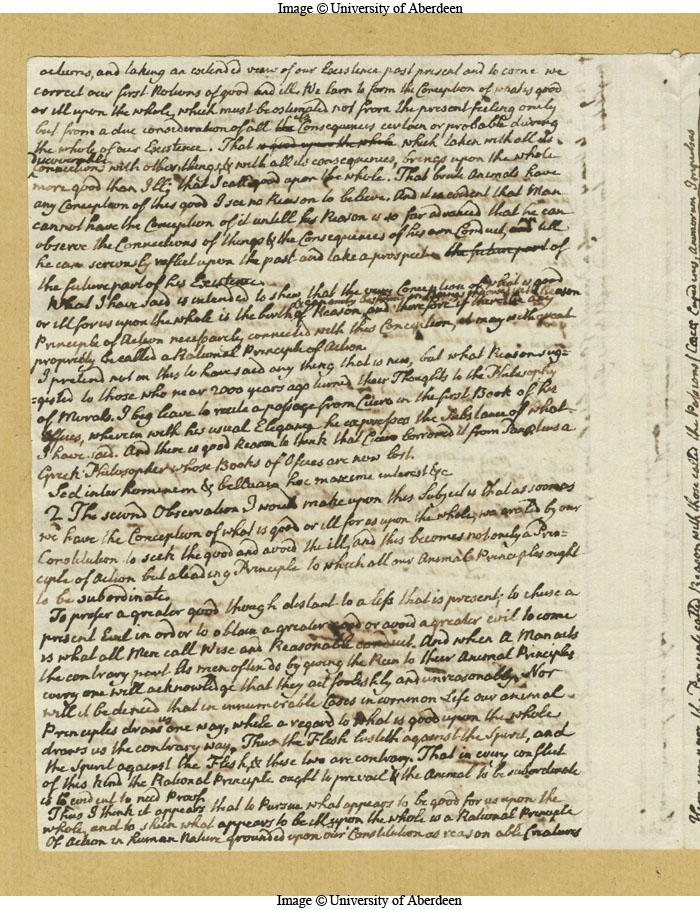 Image © University of Aberdeen
actions, and taking an extended view of our Existence past present and to come we
correct our first Notions of good and ill. We learn to form the Conception of what is good
or ill upon the whole, which must be estimated not from the present feeling only
but from a due consideration of all the its Consequences certain or probable during
the whole of our Existence. That is good upon the whole which taken with all its
discoverable
Connections with other things, & with all its consequences, brings upon the whole
more good than Ill: that I call good upon the whole. That brute Animals have
any Conception of this good I see no Reason to believe. And it is evident that Man
cannot have the Conception of it untill his Reason is so far advanced that he can
observe the Connections of things & the Consequences of his own Conduct, and till
he can seriously reflect upon the past and take a prospect the future part of
the future part of his Existence.
What I have said is intended to shew that the very Conception of what is good
or ill for us upon the whole is the birth of Reason, and therefore if there be any
Principle of Action necessarily connected with this Conception, it may with great
propriety be called a Rational Principle of Action.
I pretend not in this to have said any thing that is new, but what Reason sug=
gested to those who near 2000 years ago turned their Thoughts to the Philosophy
of Morals. I beg leave to recite a passage from Cicero in the first Book of his
Offices, wherein with his usual Elegance he expresses the Substance of what
I have said. And there is good Reason to think that Cicero borrowed it from Panætius a
Greek Philosopher whose Books of Offices are now lost.
Sed inter hominem & belluam hoc maxime interest &c
2 The second Observation I would make upon this Subject is that as soon as
we have the Conception of what is good or ill for us upon the whole, we are led by our
Constitution to seek the good and avoid the ill, and this becomes not only a Prin=
ciple of Action but a leading Principle to which all our Animal Principles ought
to be subordinate.
To prefer a greater good though distant to a less that is present; to chuse a
present Evil in order to obtain a greater good or avoid a greater evil to come
is what all Men call Wise and Reasonable conduct. And when a Man acts
the contrary part As men often do by giving the Rein to their Animal Principles
every one will acknowledge that they act foolishly and unreasonably. Nor
will it be denied that in innumerable Cases in common Life our animal
Principles draw us one way, while a regard to what is good upon the whole
draws us the contrary way. Thus the Flesh lusteth against the Spirit, and
the Spirit against the Flesh, & these two are contrary. That in every conflict
of this kind the Rational Principle ought to prevail & the Animal to be subordinate
is too evident to need Proof.
Thus I think it appears that to Pursue what appears to be good for us upon the
whole, and to shun what appears to be ill upon the whole is a Rational Principle
of Action in Human Nature grounded upon our Constitution as reasonable Creatures
Image © University of Aberdeen